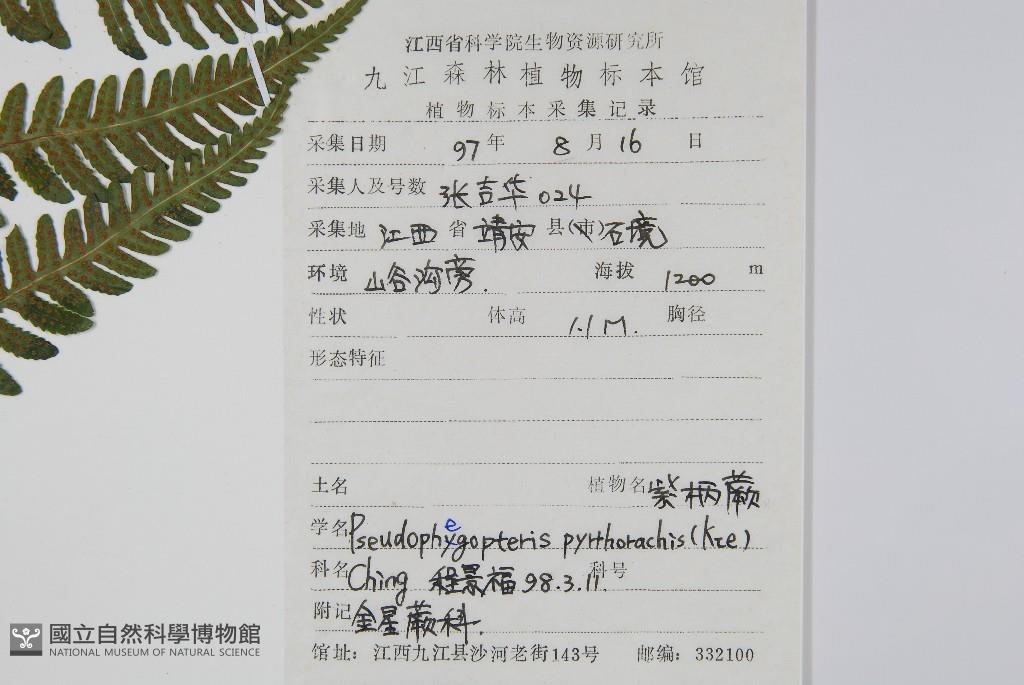 江西省科学院生物资源研究所
九江森林植物标本馆
植物标本采集记录
采集日期 97 年 8 月 16 日
采集人及号数 张吉华 024
采集地 江西 省 靖安 县(市) 石境
环境 山谷沟旁. 海拔 1200 m
性状 体高 1.1 M. 胸径
形态特征
土名 植物名 紫柄蕨
学名 Pseudophegopteris pyrrhorachis (Kze)
科名 Ching 程景福 98.3.11. 科号
附记 金星蕨科.
馆址: 江西九江县沙河老街143号 邮编: 332100
國立自然科學博物館
NATIONAL MUSEUM OF NATURAL SCIENCE